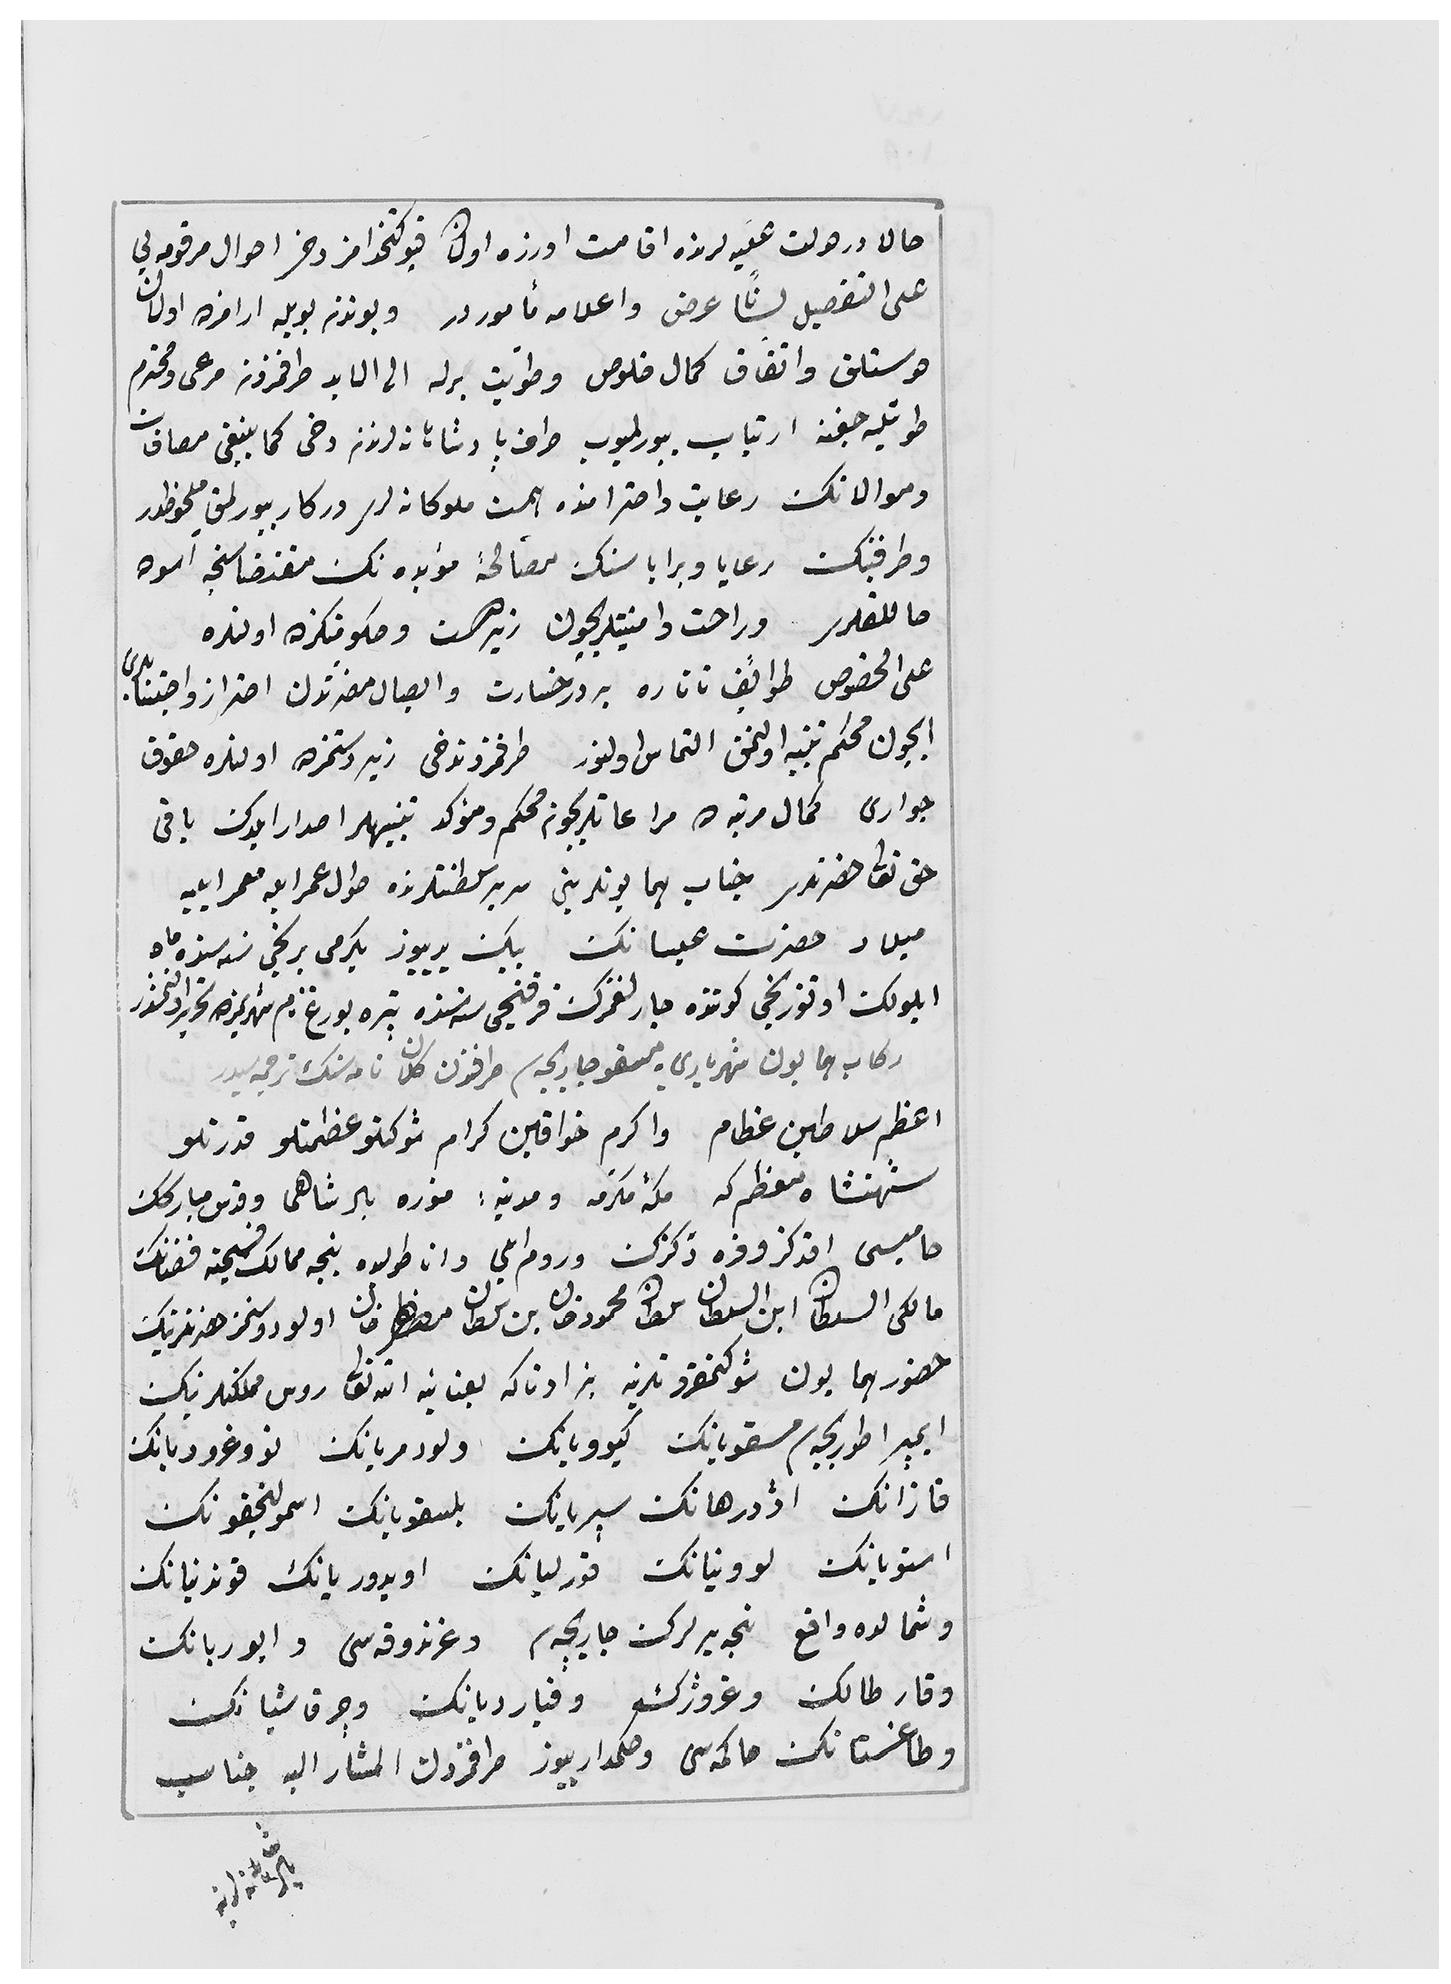 حالا در دولت علیه لرنده اقامت اوزره اولان قپو کتخدامز دخی احوال مرقومه یی
على التفصیل لسانًا عرض و اعلامه مأموردر و بوندن بویله ارامزده اولان
دوستلق و اتفاق کمال خلوص و طویت برله الى الابد طرفمزدن مرعى و محترم
طوتیله جغنه ارتیاب بیورلمیوب طرف پادشاهانه لرندن دخی کما ینبغی مصافات
و موالاتک رعایت و احترامنده همت ملوکانه لری درکار بیورلمق ملحوظدر
و طرفینک رعایا و برایاسنک مصالحهٔ مؤبده نک مقتضاسنجه اسوده
حاللقلری و راحت و امنیتلریچون زیر دست و حکومتکزده اولنلره
على الخصوص طوائف تاتاره بر درلو خسارت و ایصال مضرتدن احتراز و اجتنابلری
ایچون محکم تنبیه اولنمق التماس اولنور طرفمزدن دخی زیر دستمزده اولنلره حقوق
جواری کمال مرتبه ده مراعاتلریچون محکم و مؤکد تنبیهلر اصدار ایدک باقی
حق تعالى حضرتلری جناب همایونلرینی سریر سلطنتلرنده طول عمر ایله معمر ایلیه
میلاد حضرت عیسانک بیک یدییوز یکرمی برنجی سنه سنده ماه
ایلولک اوتوزنجی کوننده چارلغمزک قرقنجی سنه سنده پتره بورغ نام شهریمزده تحریر اولنمشدر
رکاب همایون شهریاری یه مسقو چاریچه سی طرفندن کلان نامه سنک ترجمه سیدر
اعظم سلاطین عظام و اکرم خواقین کرام شوکتلو عظمتلو قدرتلو
شهنشاه معظم که مکهٔ مکرمه و مدینهٔ منوره پادشاهی و قدس مبارکک
حامیسی اقدکز و قره دکزک و روم ایلی و اناطولیده نیجه ممالک فسیحه نک
مالکی السلطان ابن السلطان سلطان محمود خان بن سلطان مصطفى خان اولو دوستمز حضرتلرینک
حضور همایون شوکتمقرونلرینه بز اوناکه بعنایة الله تعالى روس مملکتلرینک
ایمپراطوریچه سی مسقویانک کیوویانک ولودمریانک نووغرودیانک
قازانک اژدرهانک سبریانک پلسقویانک اسمولنچقونک
استویانک لوونیانک قورلیانک اویدوریانک قوندنیانک
و شمالده واقع نیجه یرلرک چاریچه سی و غرندوقه سی و ایوریانک
و قارطالک و غروژرک و قبارديانک و چرقاشیانک
و طاغستانک حاکمه سی و حکمداریوز طرفمزدن المشار الیه جناب